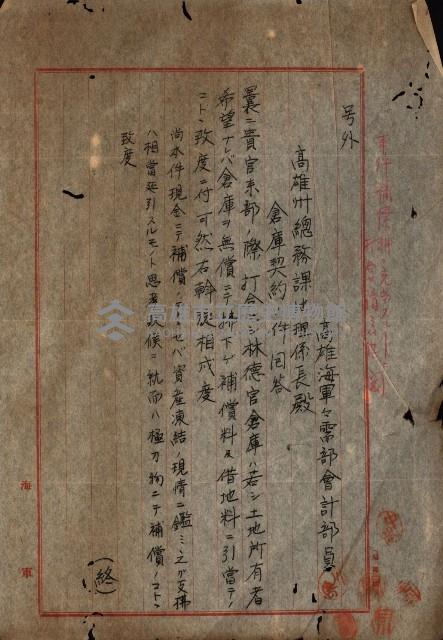 号外
高雄州總務課地理係長殿
高雄海軍々需部會計部員
倉庫契約ノ件回答
曩ニ貴官来部ノ際打合セシ林德官倉庫ハ若シ土地所有者
希望ナレバ倉庫ヲ無償ニテ拂下ゲ補償料及借地料ニ引當テノ
コトニ致度ニ付可然右斡旋相成度
尚本件現金ニテ補償
セバ資産凍結ノ現情ニ鑑ミ之ガ支拂
ハ相當延引スルモノト思考致候ニ就而ハ極力物ニテ補償ノコトニ
致度
(終)
海軍